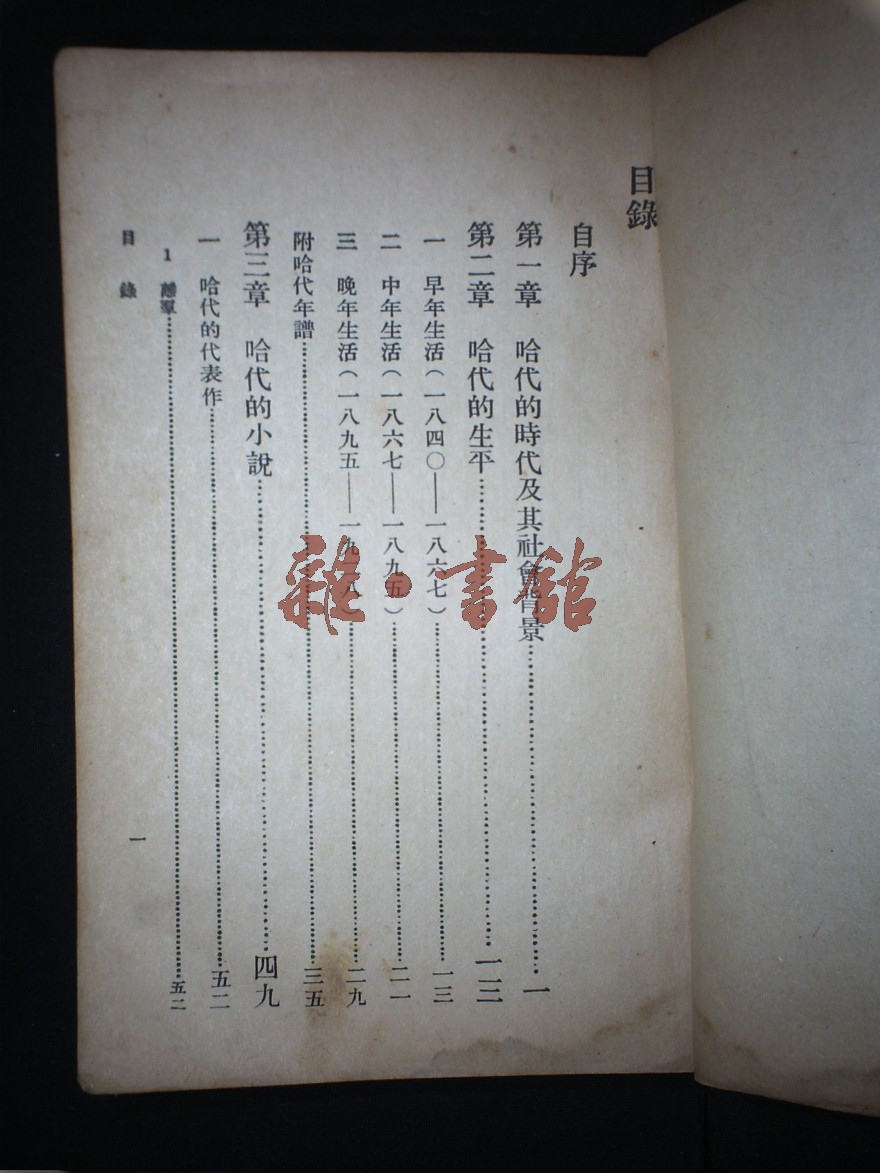 目錄
自序
第一章 哈代的時代及其社會背景……一
第二章 哈代的生平……一三
一 早年生活(一八四〇——一八六七)……一三
二 中年生活(一八六七——一八九五)……二一
三 晚年生活(一八九五——一九二八)……二九
附哈代年譜……三五
第三章 哈代的小說……四九
一 哈代的代表作……五二
1 離羣……五二
目錄
一
雜·書舘